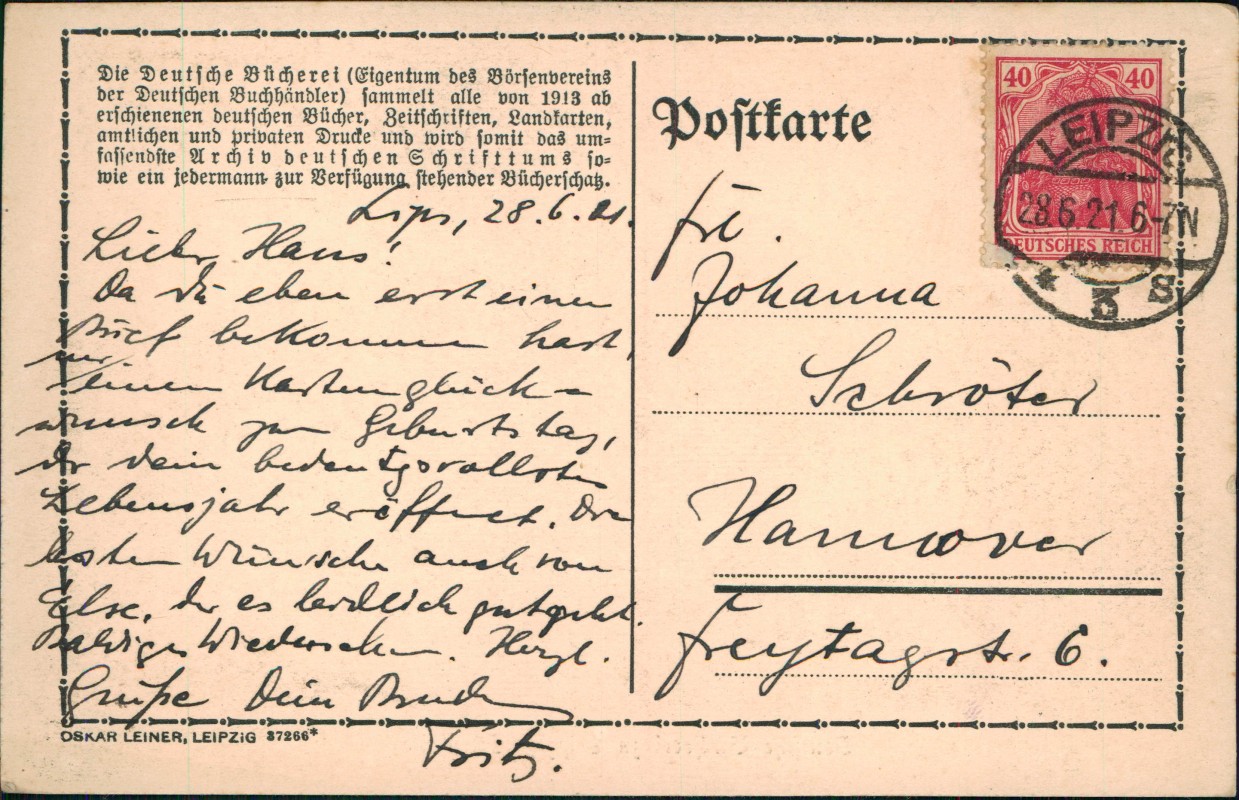 Die Deutsche Bücherei (Eigentum des Börsenvereins
der Deutschen Buchhändler) sammelt alle von 1913 ab
erschienenen deutschen Bücher, Zeitschriften, Landkarten,
amtlichen und privaten Drucke und wird somit das um-
fassendste Archiv deutschen Schrifttums so-
wie ein jedermann zur Verfügung stehender Bücherschatz.
Lips, 28.6.21.
Lieber Hans!
Da Du eben erst einen
Brief bekommen hast,
nur einen Kartenglück-
wunsch zum Geburtstag,
der dein bedeutgsvollstes
Lebensjahr eröffnet. Die
besten Wünsche auch von
Else, der es leidlich gut geht.
Baldiges Wiedersehen. Herzl.
Grüße Dein Bruder
Fritz.
OSKAR LEINER, LEIPZIG 37266*
Postkarte
40 40
DEUTSCHES REICH
LEIPZIG
28.6.21.6-7N
* 3 S
Frl.
Johanna
Schröter
Hannover
Freytagstr. 6.